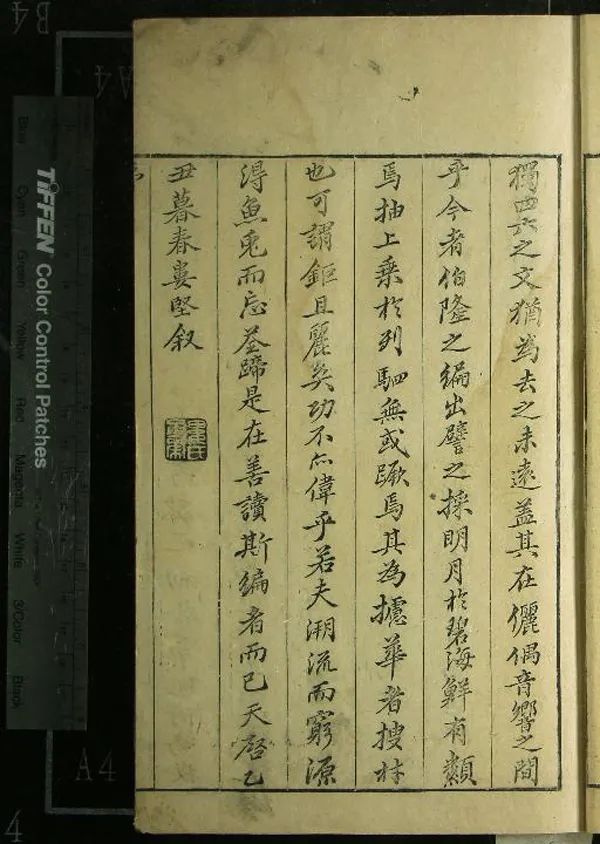 獨四六之文猶為去之未遠蓋其在儷偶音響之間
乎今者伯隆之編出譬之採明月於碧海鮮有纇
焉抽上乗於列駟無或蹶焉其為攄華者搜材
也可謂鉅且麗矣功不亦偉乎若夫溯流而窮源
淂魚兎而忘荃蹄是在善讀斯編者而已天啓乙
丑暮春婁堅叙
TIFFEN Color Control Patches
Blue Cyan Green Yellow Red Magenta White 3/Color Black
B4
A4
A4
4